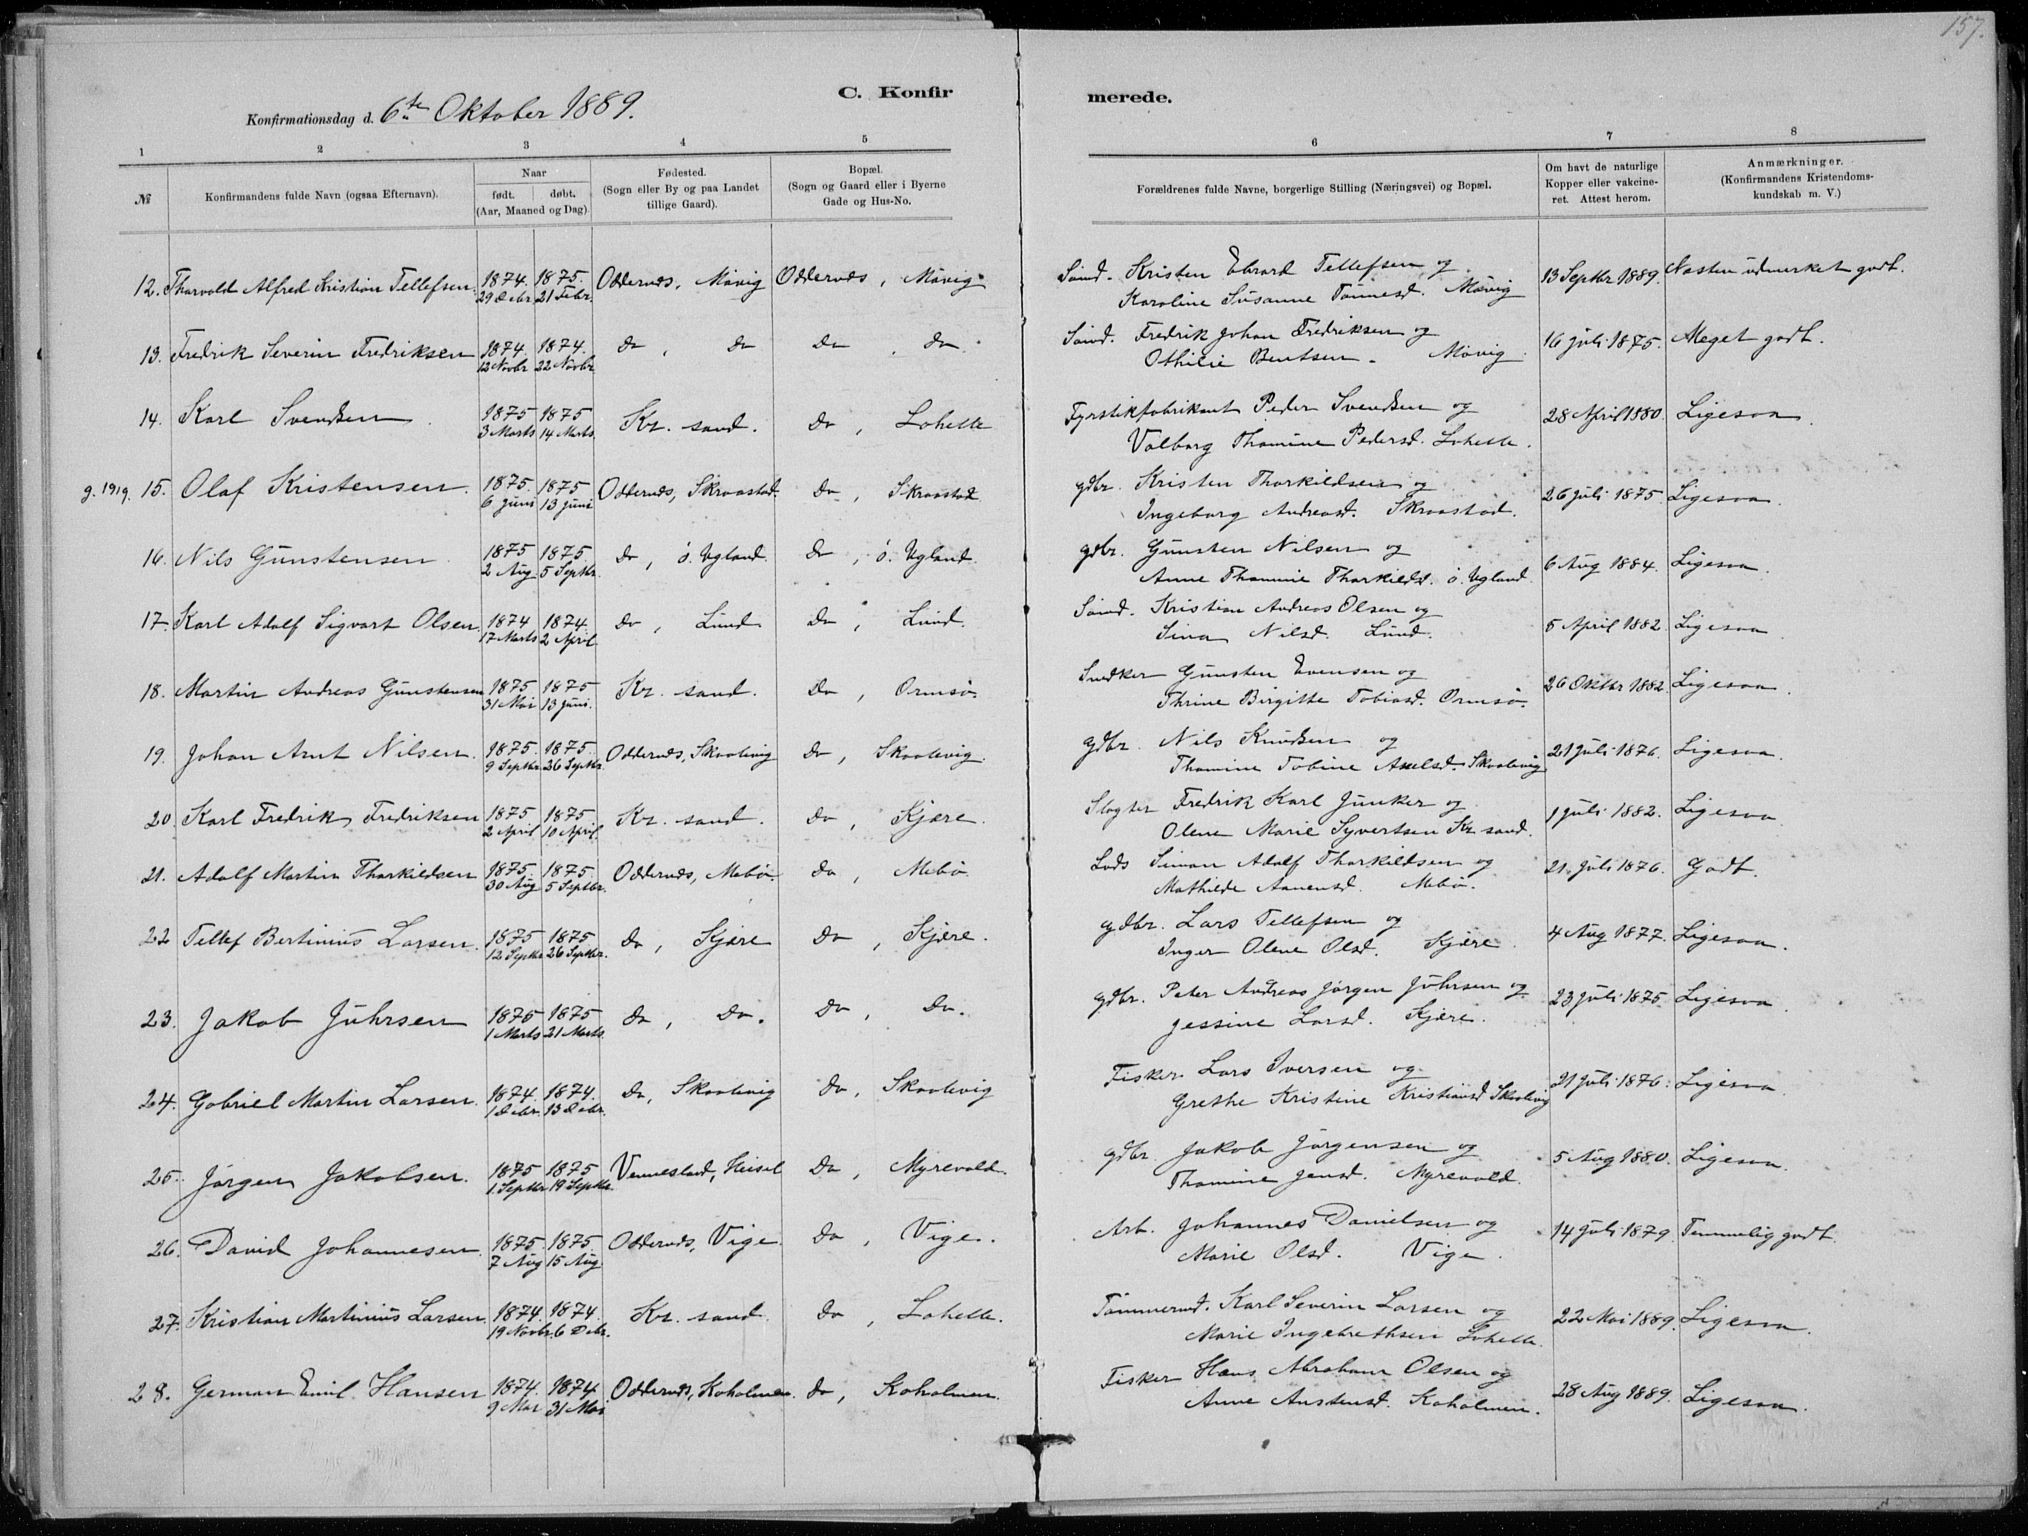 157.
C. Konfirmerede.
Konfirmationsdag d. 6te Oktober 1889.
1 2 3 4 5 6 7 8
№ | Konfirmandens fulde Navn (ogsaa Efternavn). | Naar født. døbt. (Aar, Maaned og Dag). | Fødested. (Sogn eller By og paa Landet tillige Gaard). | Bopæl. (Sogn og Gaard eller i Byerne Gade og Hus-No. | Forældrenes fulde Navne, borgerlige Stilling (Næringsvei) og Bopæl. | Om havt de naturlige Kopper eller vakcineret. Attest herom. | Anmærkninger. (Konfirmandens Kristendomskundskab m. V.)
12. Thorvald Alfred Kristian Tellefsen | 1874. 29 Debr. | 1875. 21 Febr. | Oddernæs, Møvig | Oddernæs, Møvig | Sømd. Kristen Edvard Tellefsen og
Karoline Susanne Tønnesd. Møvig | 13 Septbr 1889. | Næsten udmerket godt.
13. Fredrik Severin Fredriksen | 1874. 12 Novbr. | 1874. 22 Novbr. | do, do | do, do | Sømd. Fredrik Johan Fredriksen og
Othilie Bentsen. Møvig | 16 Juli 1875. | Meget godt.
14. Karl Svendsen | 1875 3 Marts | 1875 14 Marts | Kr. sand. | do, Lohelle | Fyrstikfabrikant Peder Svendsen og
Valborg Thomine Pedersd. Lohelle. | 28 April 1880. | Ligesaa.
g. 1919. 15. Olaf Kristensen. | 1875. 6 Juni | 1875 13 Juni | Oddernæs, Skraastad. | do, Skraastad | gdbr. Kristen Thorkildsen og
Ingeborg Andreasd. Skraastad. | 26 Juli 1875. | Ligesaa.
16. Nils Gunstensen | 1875 2 Aug | 1875 5 Septbr. | do, ö. Ugland. | do, ö. Ugland. | gdbr. Gunsten Nilsen og
Anne Thomine Thorkildsd. ö. Ugland. | 6 Aug 1884. | Ligesaa.
17. Karl Adolf Sigvart Olsen. | 1874 17 Marts | 1874. 2 April | do, Lund | do, Lund. | Sømd. Kristian Andreas Olsen og
Sina Nilsd. Lund. | 5 April 1882. | Ligesaa
18. Martin Andreas Gunstensen | 1875. 31 Mai | 1875 13 Juni. | Kr. sand. | do, Ormsø. | Snedker Gunsten Evensen og
Thrine Birgitte Tobiasd. Ormsø. | 26 Oktbr 1882. | Ligesaa.
19. Johan Arnt Nilsen. | 1875. 9 Septbr. | 1875. 26 Septbr. | Oddernæs, Skaalevig | do, Skaalevig. | gdbr. Nils Knudsen og
Thomine Tobine Axelsd. Skaalevig | 21 Juli 1876. | Ligesaa.
20. Karl Fredrik Fredriksen | 1875 2 April | 1875. 10 April. | Kr. sand. | do, Kjære. | Slagter Fredrik Karl Junker og
Olene Marie Syvertsen Kr. sand. | 1 Juli 1882. | Ligesaa
21. Adolf Martin Thorkildsen | 1875. 30 Aug | 1875. 5 Septbr. | Oddernæs, Mebø. | do, Mebø. | Lods Simon Adolf Thorkildsen og
Mathilde Aanensd. Mebø. | 21 Juli 1876. | Godt.
22 Tellef Bertinius Larsen. | 1875 12 Septbr | 1875 26 Septbr. | do, Kjære | do, Kjære. | gdbr. Lars Tellefsen og
Inger Olene Olsd. Kjære | 4 Aug 1877. | Ligesaa.
23. Jakob Juhrsen | 1875 1 Marts | 1875. 21 Marts. | do, do. | do, do. | gdbr. Peter Andreas Jørgen Juhrsen og
Jessine Larsd. Kjære. | 23 Juli 1875. | Ligesaa
24. Gabriel Martin Larsen. | 1874. 1 Debr. | 1874. 13 Debr. | do, Skaalevig | do, Skaalevig | Fisker Lars Iversen og
Grethe Kristine Kristiansd Skaalevig | 21 Juli 1876. | Ligesaa
25. Jørgen Jakobsen. | 1875 1 Septbr | 1875 19 Septbr. | Vennesland, Heisel | do, Myrevold. | gdbr. Jakob Jørgensen og
Thomine Jensd. Myrevold. | 5 Aug 1880. | Ligesaa.
26. David Johannesen. | 1875. 7 Aug | 1875 15 Aug. | Oddernæs, Vige. | do, Vige. | Arb. Johannes Danielsen og
Marie Olsd. Vige. | 14 Juli 1879. | Temmelig godt.
27. Kristian Martinius Larsen. | 1874. 19 Novbr. | 1874. 6 Debr. | Kr. sand. | do, Lohelle. | Tømmermd. Karl Severin Larsen og
Marie Ingebrethsen Lohelle. | 22 Mai 1889. | Ligesaa.
28. German Emil Hansen | 1874. 9 Mai | 1874 31 Mai | Oddernæs, Koholmen. | do, Koholmen. | Fisker Hans Abraham Olsen og
Anne Austensd. Koholmen. | 28 Aug 1889. | Ligesaa.